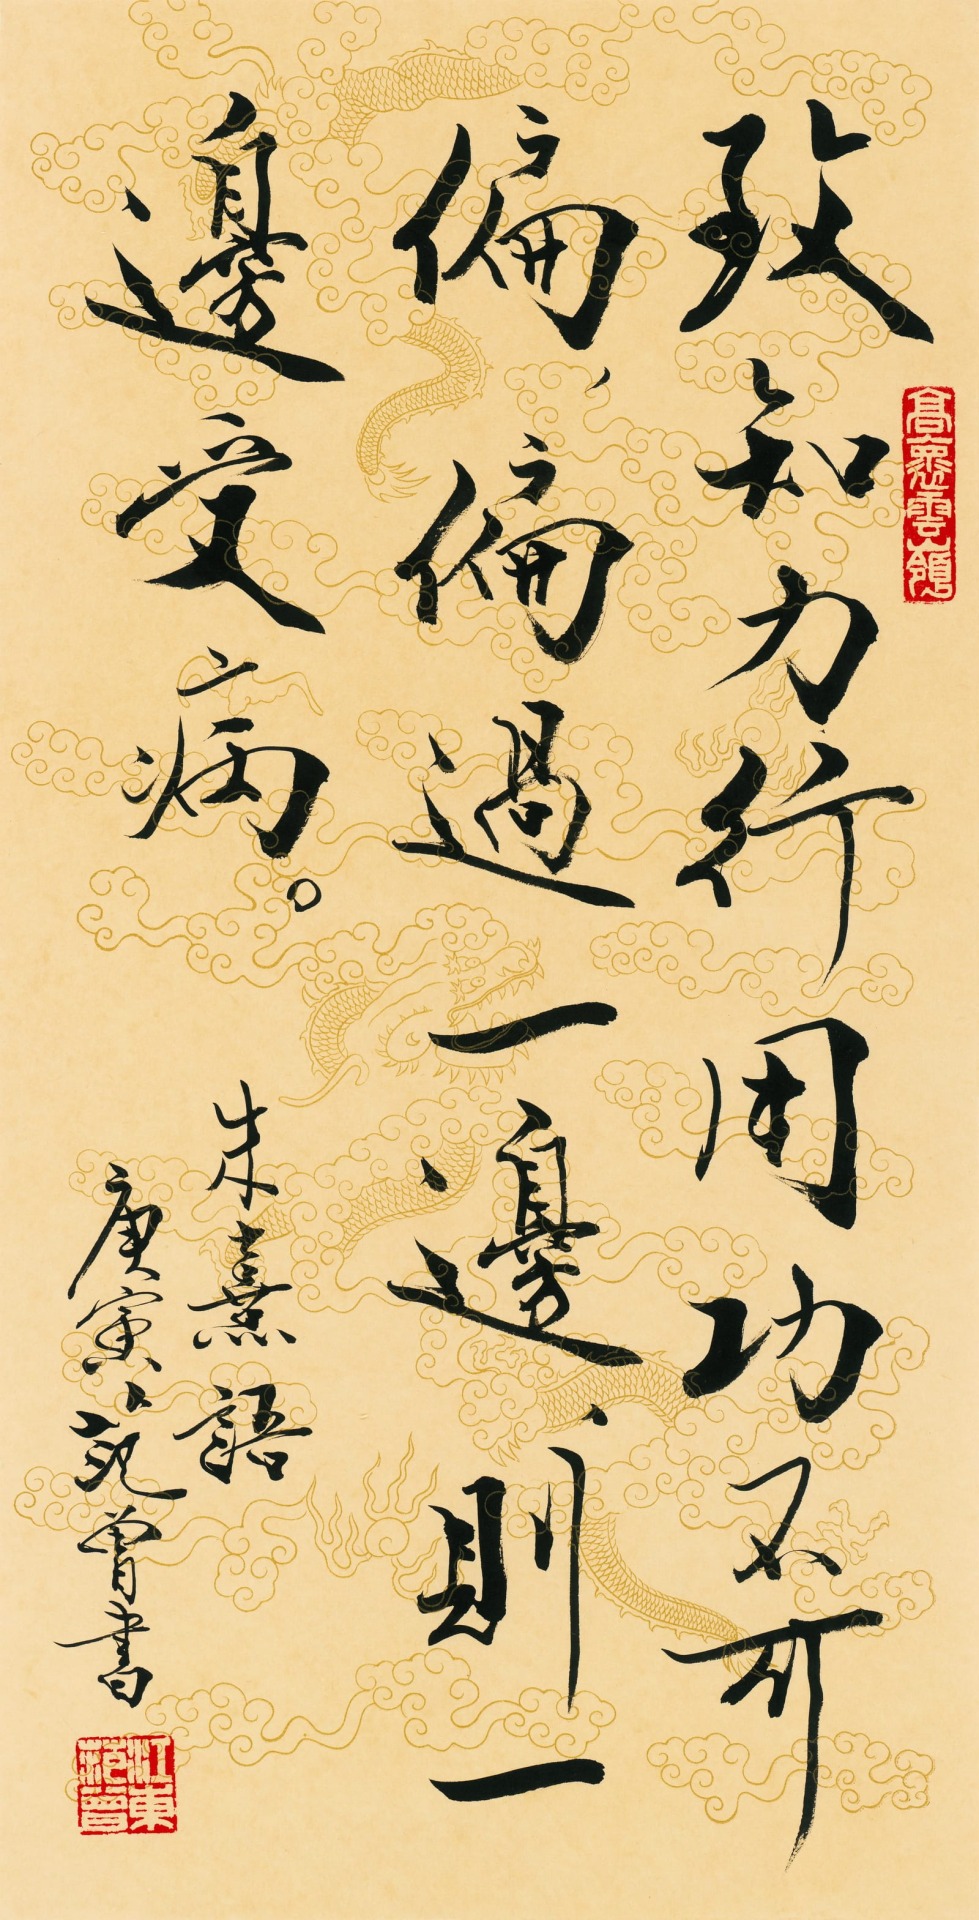 致知力行用功不可
偏、偏過一邊、則一
邊受病。
朱熹語
庚寅、范曾書
江東范曾